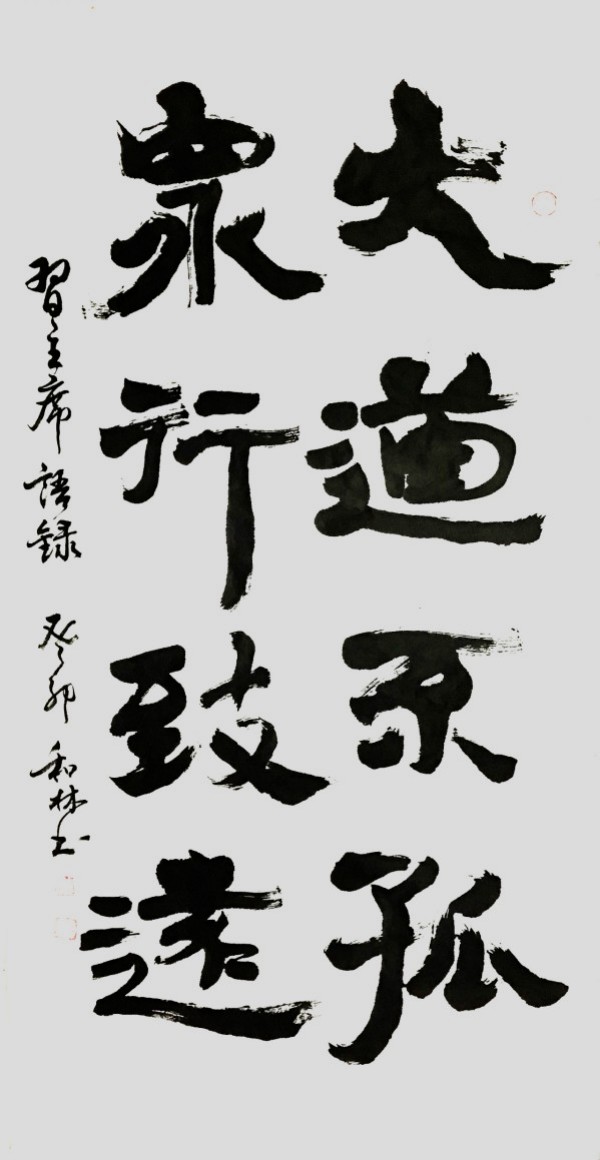 大道不孤
眾行致遠
習主席語錄 癸卯 和林书